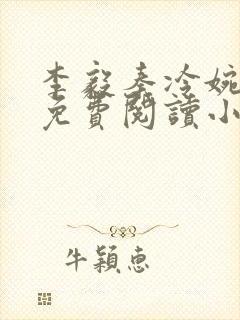 李毅奉冷婉
免費閱讀小
牛穎惠